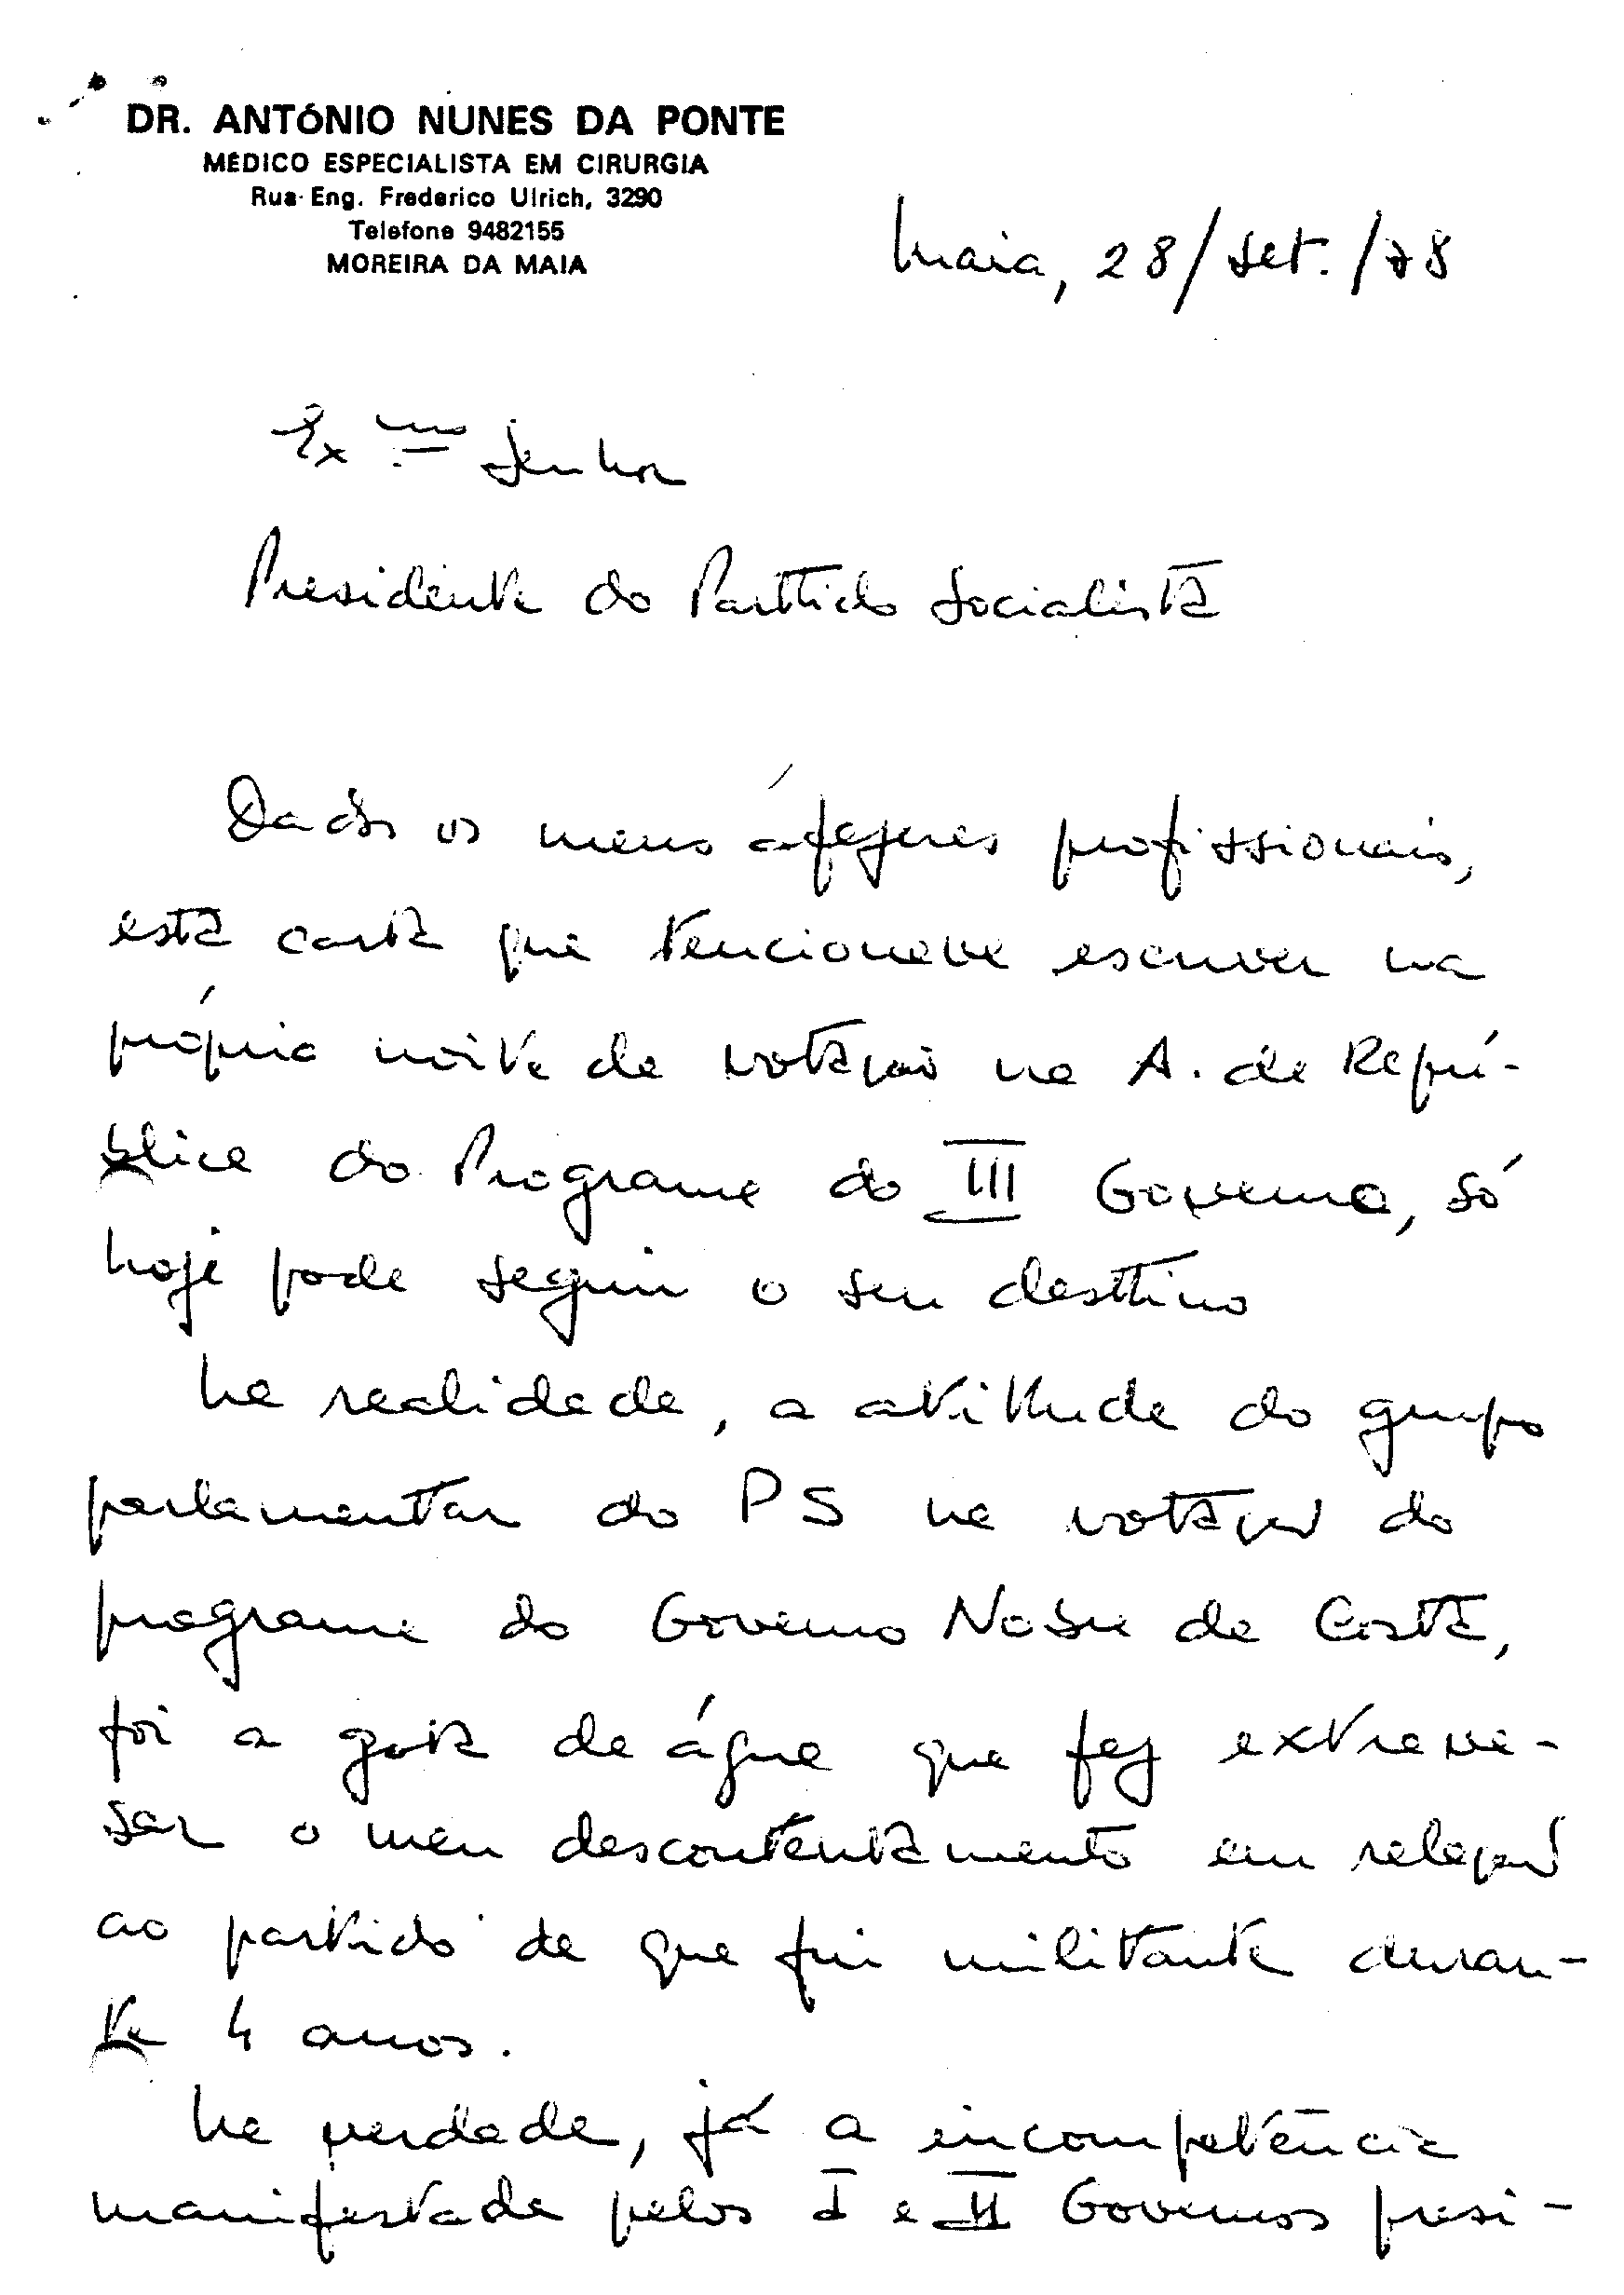 DR. ANTÓNIO NUNES DA PONTE
MÉDICO ESPECIALISTA EM CIRURGIA
Rua Eng. Frederico Ulrich, 3290
Telefone 9482155
MOREIRA DA MAIA
Maia, 28/Set./78
Exmo Senhor
Presidente do Partido Socialista
Dados os meus áfazeres profissionais,
esta carta que tencionava escrever na
própria noite da votação na A. da Repú-
blica do Programa do III Governo, só
hoje pode seguir o seu destino
Na realidade, a atitude do grupo
parlamentar do PS na votação do
programa do Governo Nobre da Costa,
foi a gota de água que fez extrava-
sar o meu descontentamento em relação
ao partido de que fui militante duran-
te 4 anos.
Na verdade, já a incompetência
manifestada pelos I e II Governos presi-